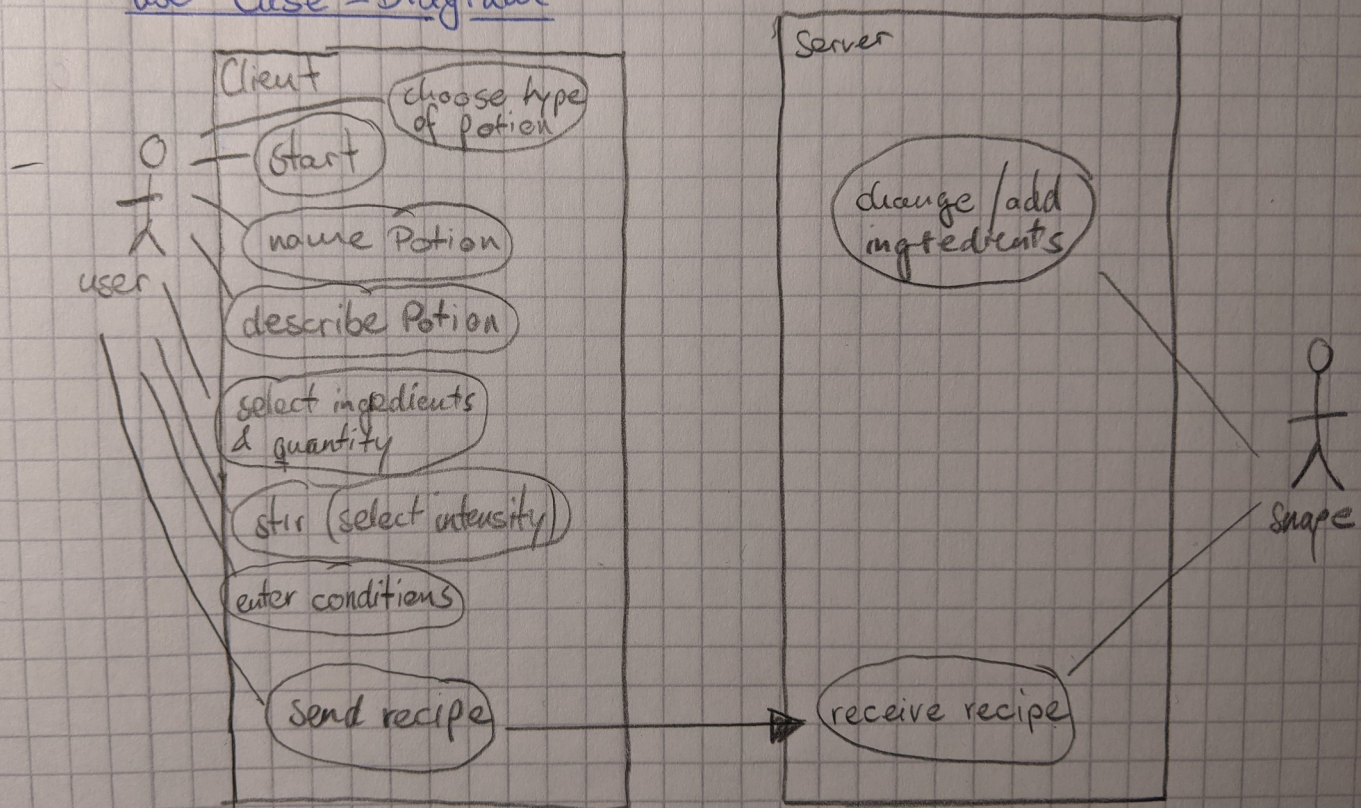 Use Case-Diagram
Client
choose type
of Potion
Start
name Potion
describe Potion
select ingedients
& quantity
stir (select intensity)
enter conditions
send recipe
user
Server
change/add
ingredients
receive recipe
Snape